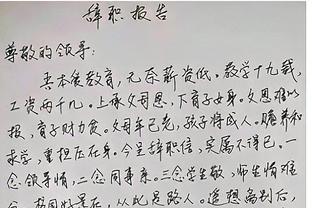 辞职报告
尊敬的领导:
吾本从教育,无奈薪资低。教学十九载,
工资两千几。上承父母恩,下育子女身。父恩难以
报,育子财力贫。父母年已老,孩子将成人。赡养和
求学,重担在身。今呈辞职信,实属不得已。一
念领导情,二念同事亲。三念学生敬,师生情难
后,从此是路人。追想离别后,